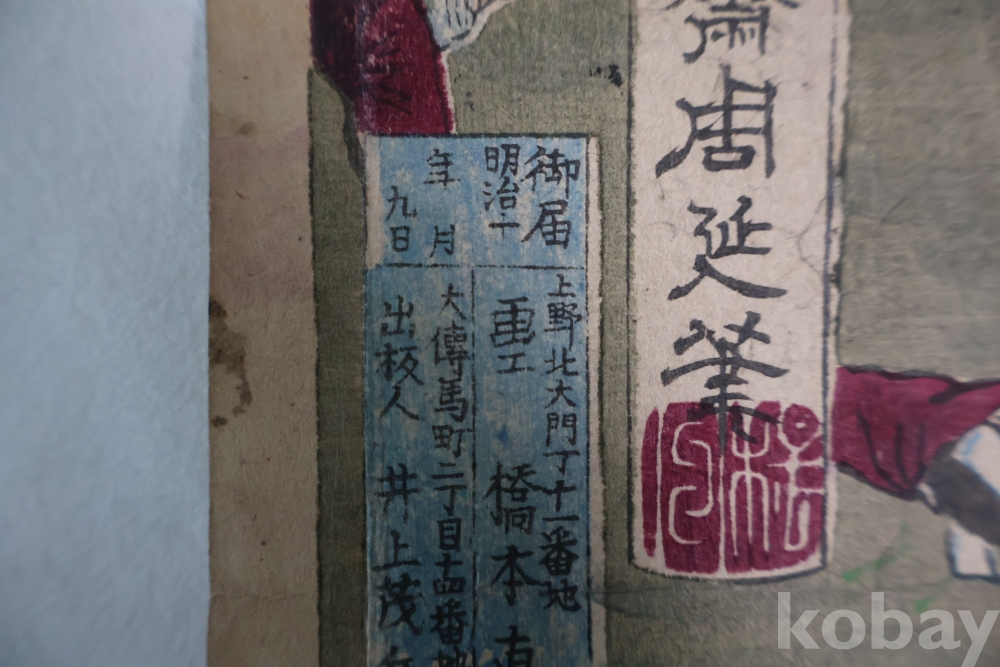 齋周延筆
御届
明治一
年 月
九日
上野北大門丁十一番地
画工 橋本直
大傳馬町二丁目十四番地
出板人 井上茂
kobay